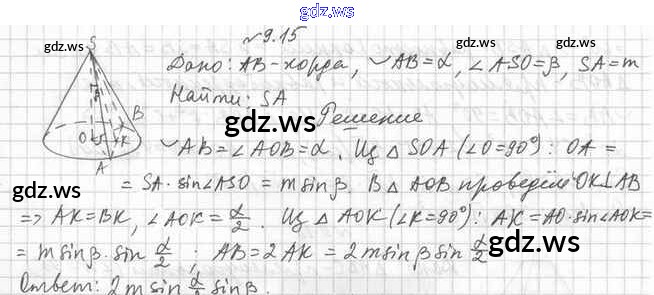 gdz.ws
№ 9.15
gdz.ws
gdz.ws
Дано: AB - хорда, ◡AB = α, ∠ASO = β, SA = m
Найти: SA
gdz.ws
Решение
◡AB = ∠AOB = α. Из △ SOA (∠O = 90°): OA =
= SA · sin∠ASO = m sin β. В △ AOB проведём OK⊥AB
=> AK = BK, ∠AOK = α/2. Из △ AOK (∠K = 90°): AK = AO · sin∠AOK =
= m sin β · sin α/2 ; AB = 2 AK = 2 m sin β sin α/2
gdz.ws
gdz.ws
Ответ: 2 m sin α/2 sin β.
S
O
K
B
A